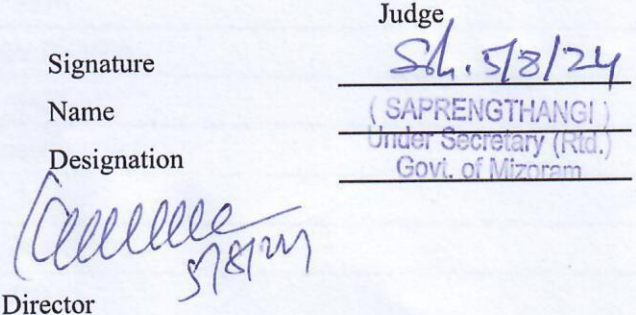 Judge
Signature 5/8/24
Name ( SAPRENGTHANGI )
Designation Under Secretary (Rtd.)
Govt. of Mizoram
5/8/24
Director